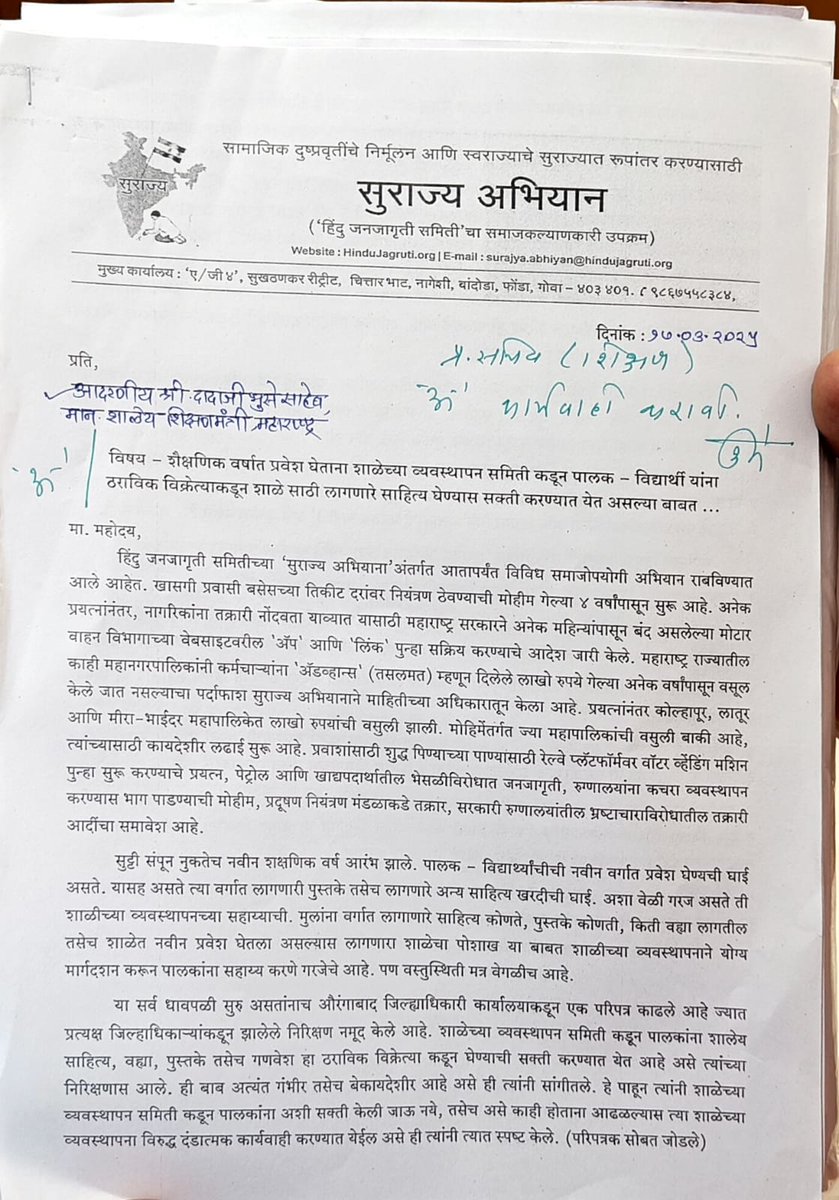 सामाजिक दुष्प्रवृतींचे निर्मूलन आणि स्वराज्याचे सुराज्यात रूपांतर करण्यासाठी
सुराज्य
सुराज्य अभियान
('हिंदु जनजागृती समिती'चा समाजकल्याणकारी उपक्रम)
Website : HinduJagruti.org | E-mail : surajya.abhiyan@hindujagruti.org
मुख्य कार्यालय : 'ए/जी ४', सुखठणकर रीट्रीट, चित्तार भाट, नागेशी, बांदोडा, फोंडा, गोवा – ४०३ ४०१. ९८६७५५८३८४,
दिनांक : १७.०३.२०२५
प्रति,
आदरणीय श्री. दादाजी भुसे साहेब,
मान. शालेय शिक्षणमंत्री महाराष्ट्र
प्र. सचिव (शिक्षण)
कार्यवाही करावी.
विषय – शैक्षणिक वर्षात प्रवेश घेताना शाळेच्या व्यवस्थापन समिती कडून पालक – विद्यार्थी यांना
ठराविक विक्रेत्याकडून शाळे साठी लागणारे साहित्य घेण्यास सक्ती करण्यात येत असल्या बाबत ...
मा. महोदय,
हिंदु जनजागृती समितीच्या 'सुराज्य अभियाना'अंतर्गत आतापर्यंत विविध समाजोपयोगी अभियान राबविण्यात
आले आहेत. खासगी प्रवासी बसेसच्या तिकीट दरांवर नियंत्रण ठेवण्याची मोहीम गेल्या ४ वर्षांपासून सुरू आहे. अनेक
प्रयत्नांनंतर, नागरिकांना तक्रारी नोंदवता याव्यात यासाठी महाराष्ट्र सरकारने अनेक महिन्यांपासून बंद असलेल्या मोटार
वाहन विभागाच्या वेबसाइटवरील 'ॲप' आणि 'लिंक' पुन्हा सक्रिय करण्याचे आदेश जारी केले. महाराष्ट्र राज्यातील
काही महानगरपालिकांनी कर्मचाऱ्यांना 'ॲडव्हान्स' (तसलमत) म्हणून दिलेले लाखो रुपये गेल्या अनेक वर्षांपासून वसूल
केले जात नसल्याचा पर्दाफाश सुराज्य अभियानाने माहितीच्या अधिकारातून केला आहे. प्रयत्नांनंतर कोल्हापूर, लातूर
आणि मीरा-भाईंदर महापालिकेत लाखो रुपयांची वसुली झाली. मोहिमेंतर्गत ज्या महापालिकांची वसुली बाकी आहे,
त्यांच्यासाठी कायदेशीर लढाई सुरू आहे. प्रवाशांसाठी शुद्ध पिण्याच्या पाण्यासाठी रेल्वे प्लॅटफॉर्मवर वॉटर व्हेंडिंग मशिन
पुन्हा सुरू करण्याचे प्रयत्न, पेट्रोल आणि खाद्यपदार्थातील भेसळीविरोधात जनजागृती, रुग्णालयांना कचरा व्यवस्थापन
करण्यास भाग पाडण्याची मोहिम, प्रदूषण नियंत्रण मंडळाकडे तक्रार, सरकारी रुग्णालयांतील भ्रष्टाचाराविरोधातील तक्रारी
आदींचा समावेश आहे.
सुट्टी संपून नुकतेच नवीन शक्षणिक वर्ष आरंभ झाले. पालक – विद्यार्थ्यांचीची नवीन वर्गात प्रवेश घेण्यची घाई
असते. यासह असते त्या वर्गात लागणारी पुस्तके तसेच लागणारे अन्य साहित्य खरदीची घाई. अशा वेळी गरज असते ती
शाळीच्या व्यवस्थापनच्या सहाय्याची. मुलांना वर्गात लागाणारे साहित्य कोणते, पुस्तके कोणती, किती वह्या लागतील
तसेच शाळेत नवीन प्रवेश घेतला असल्यास लागणारा शाळेचा पोशाख या बाबत शाळीच्या व्यवस्थापनाने योग्य
मार्गदशन करून पालकांना सहाय्य करणे गरजेचे आहे. पण वस्तुस्थिती मत्र वेगळीच आहे.
या सर्व धावपळी सुरु असतांनाच औरंगाबाद जिल्ह्याधिकारी कार्यालयाकडून एक परिपत्र काढले आहे ज्यात
प्रत्यक्ष जिल्हाधिकाऱ्यांकडून झालेले निरिक्षण नमूद केले आहे. शाळेच्या व्यवस्थापन समिती कडून पालकांना शालेय
साहित्य, वह्या, पुस्तके तसेच गणवेश हा ठराविक विक्रेत्या कडून घेण्याची सक्ती करण्यात येत आहे असे त्यांच्या
निरिक्षणास आले. ही बाब अत्यंत गंभीर तसेच बेकायदेशीर आहे असे ही त्यांनी सांगीतले. हे पाहून त्यांनी शाळेच्या
व्यवस्थापन समिती कडून पालकांना अशी सक्ती केली जाऊ नये, तसेच असे काही होताना आढळल्यास त्या शाळेच्या
व्यवस्थापना विरुद्ध दंडात्मक कार्यवाही करण्यात येईल असे ही त्यांनी त्यात स्पष्ट केले. (परिपत्रक सोबत जोडले)